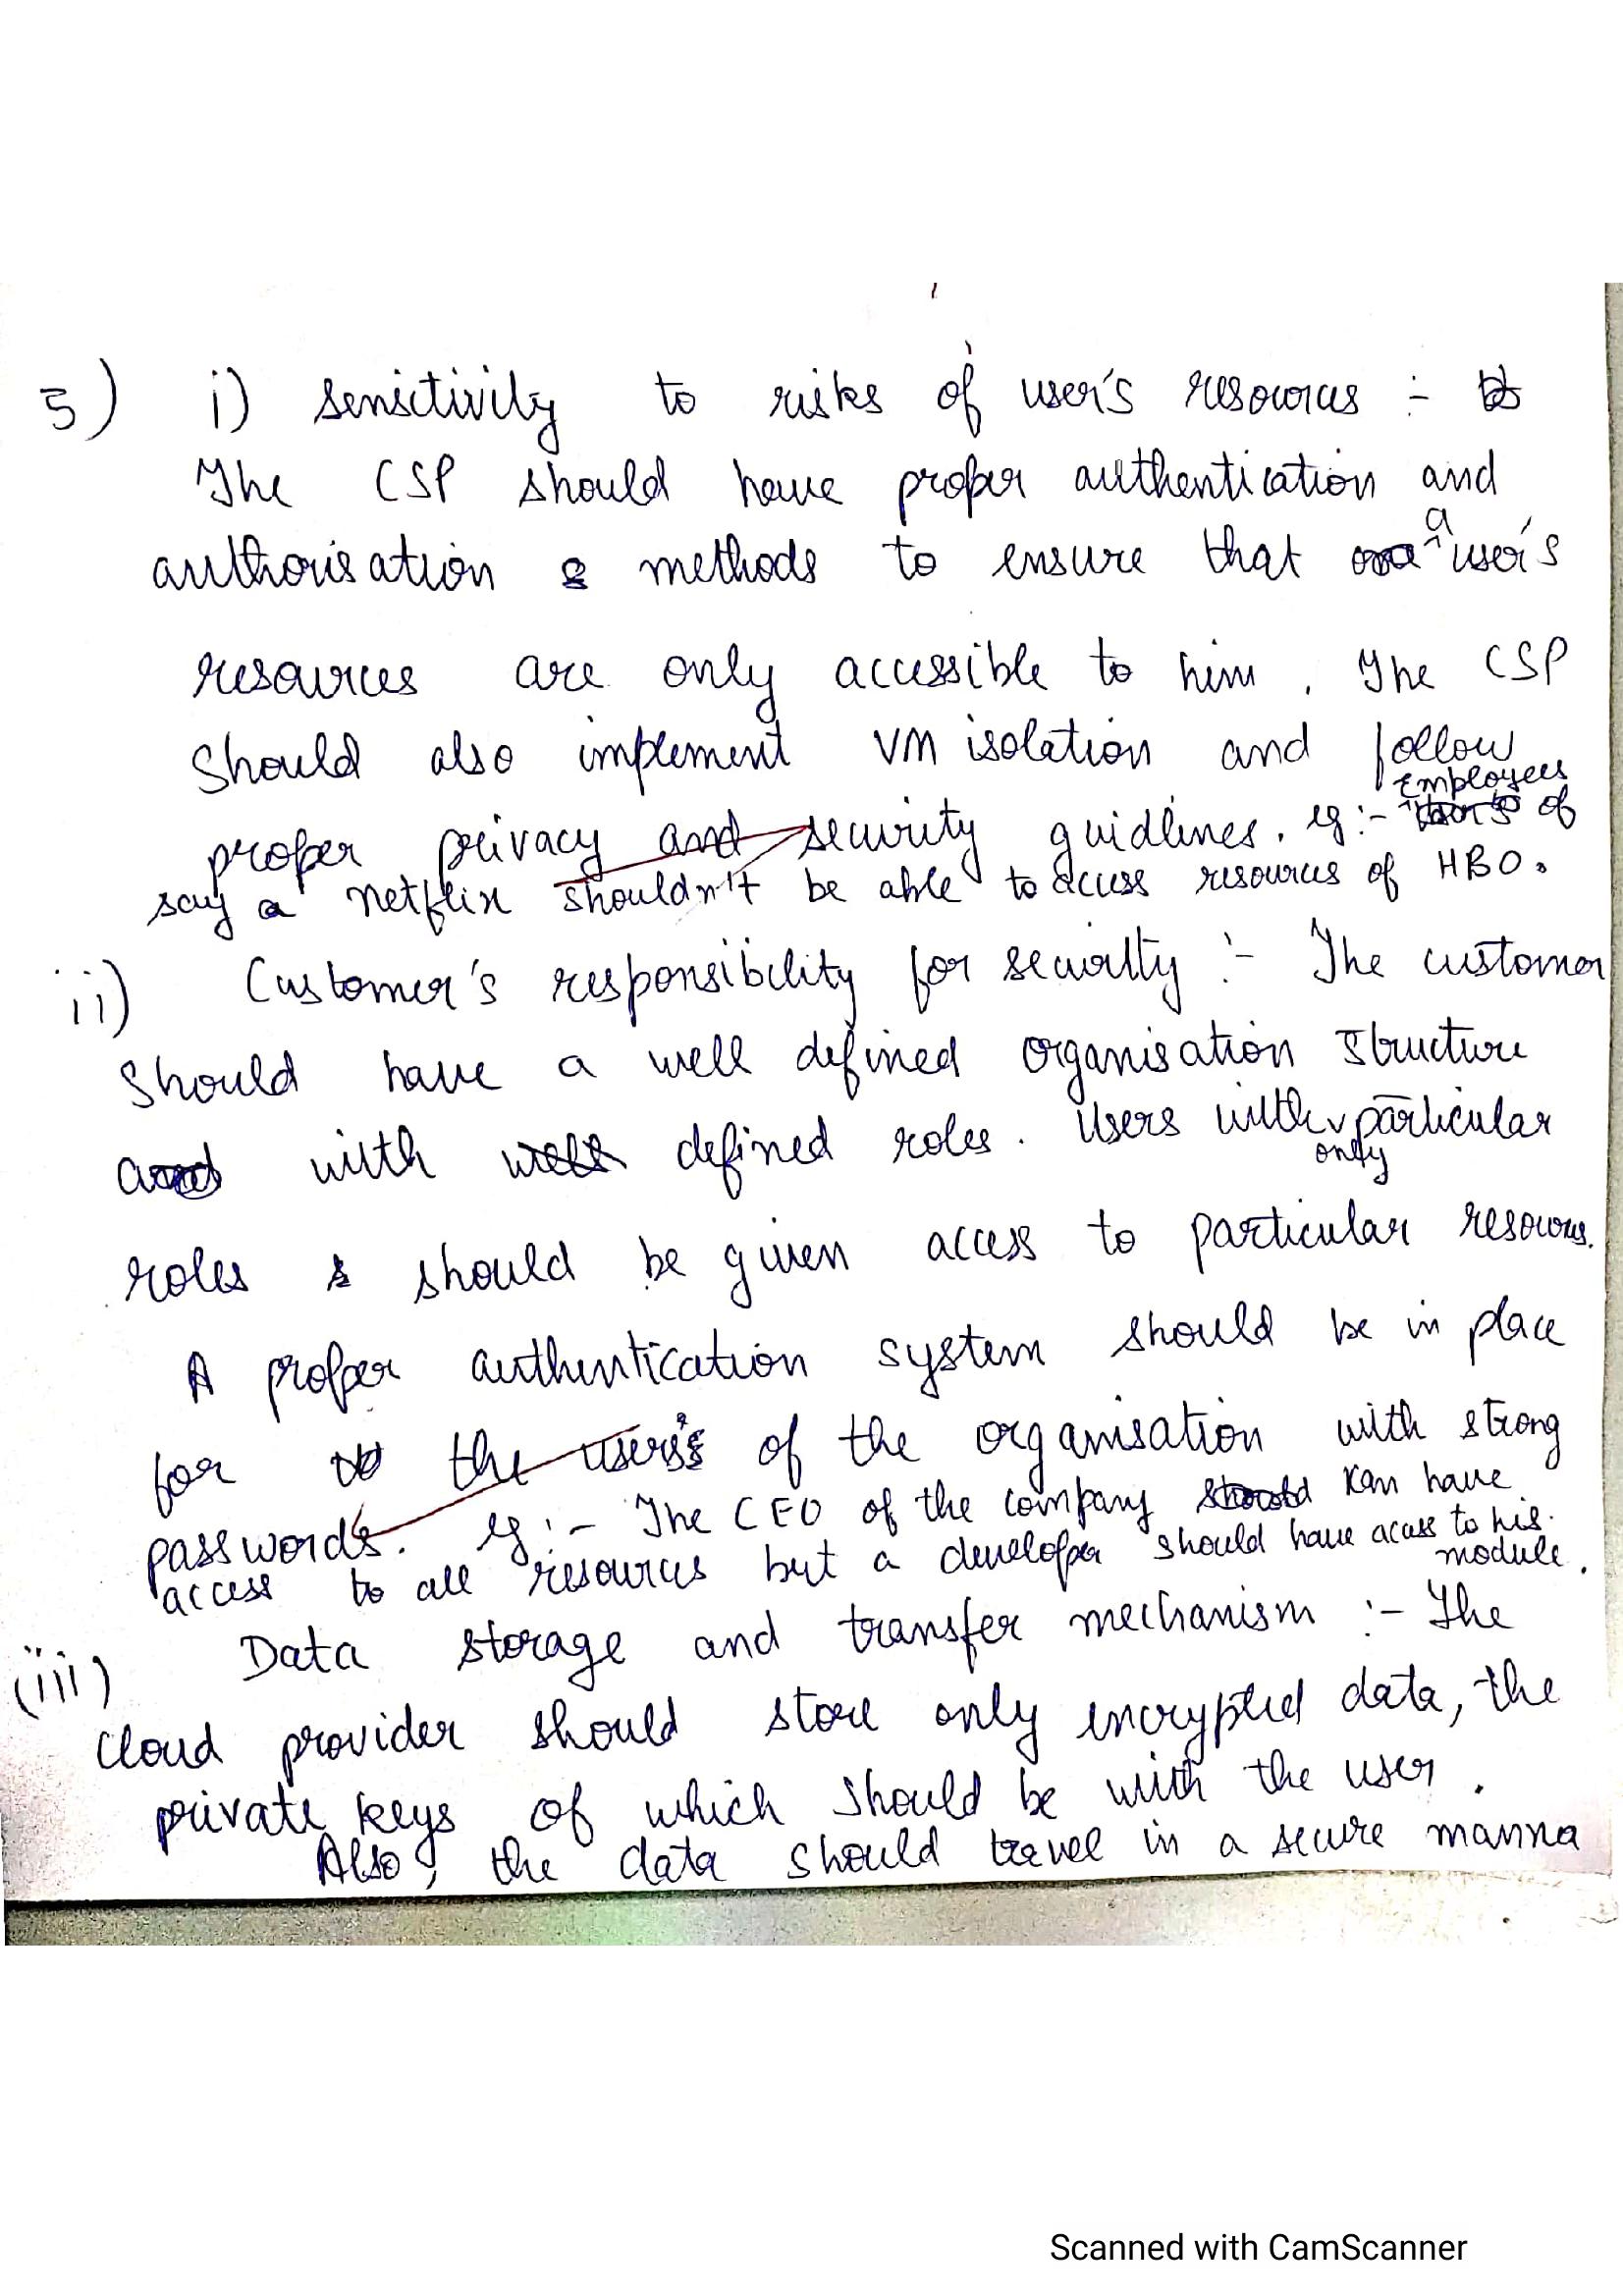 5) i) Sensitivity to risks of user's resources :-
The CSP should have proper authentication and
authorisation methods to ensure that a user's
resources are only accessible to him. The CSP
should also implement VM isolation and follow
proper privacy and security guidlines. eg :- Employees of
say a netflix shouldn't be able to access resources of HBO.
ii) Customer's responsibility for security :- The customer
should have a well defined organisation structure
with defined roles. Users with only particular
roles should be given access to particular resources.
A proper authentication system should be in place
for the users of the organisation with strong
passwords. eg :- The CEO of the company can have
access to all resources but a developer should have acess to his
module.
(iii) Data storage and transfer mechanism :- The
cloud provider should store only encrypted data, the
private keys of which should be with the user.
Also, the data should travel in a secure manner
Scanned with CamScanner